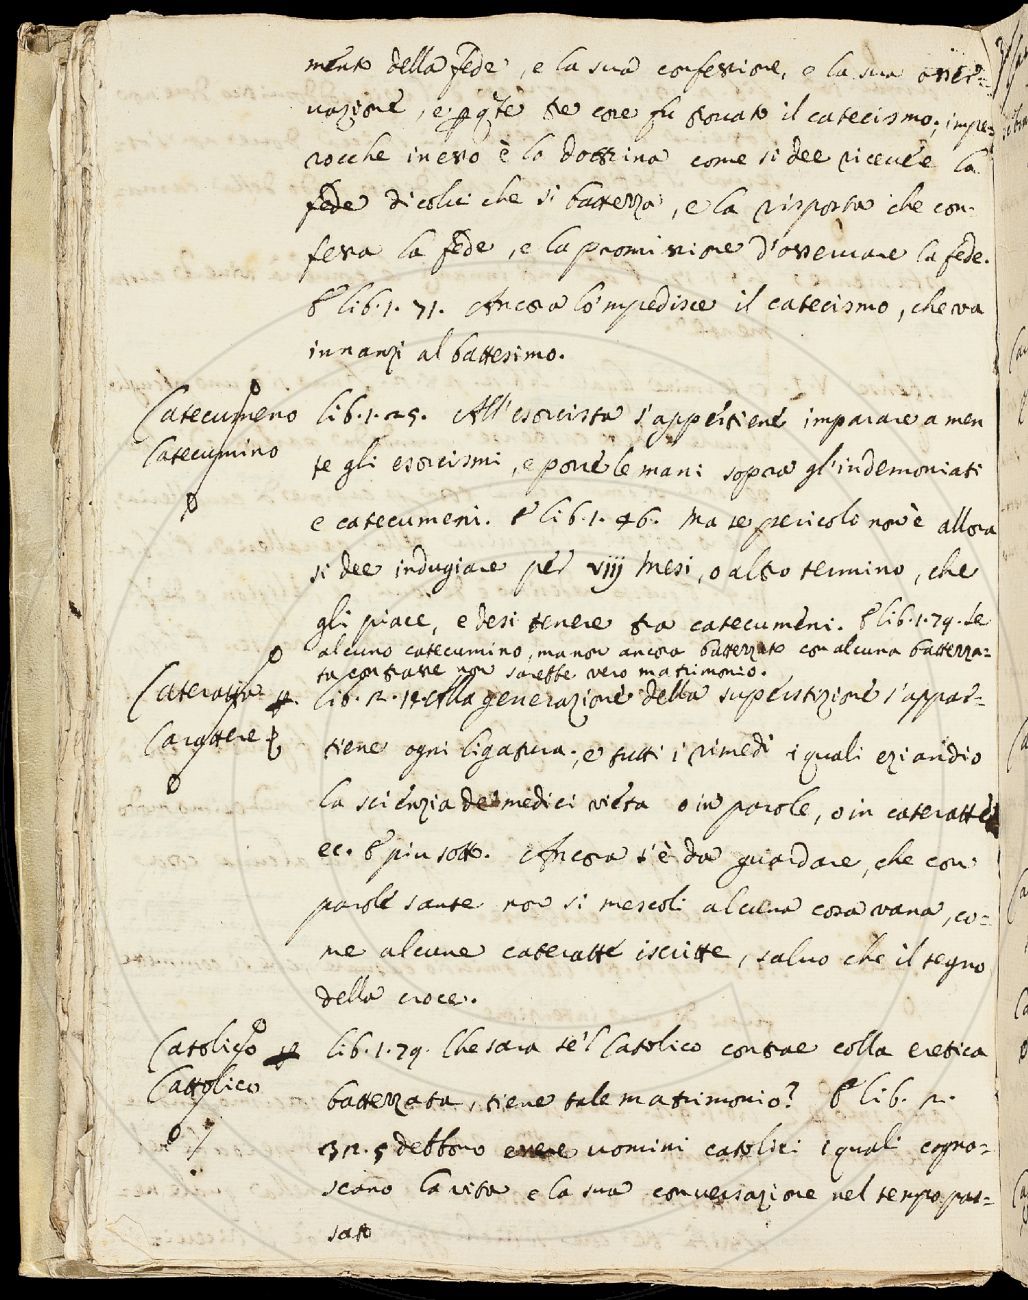 mento della fede, e la sua confessione, e la sua osser=
vazione, e p̱ q̃te tre cose fu trovato il catecismo; impe=
rocche in esso è la dottrina come si dee ricevere la
fede di colui che si battezza, e la risposta che con-
fessa la fede, e la promissione d'osservare la fede.
E lib. 1. 71. Ancora lo 'mpedisce il catecismo, che va
innanzi al battesimo.
Catecumeno lib. 1. 25. All'esorcista s'appertiene imparare a men
Catecumino te gli esorcismi, e porre le mani sopra gl'indemoniati
e catecumeni. E lib. 1. 46. Ma se pericolo non è allora
si dee indugiare per viij mesi, o altro termino, che
gli piace, e desi tenere tra catecumeni. E lib. 1. 79. Se
alcuno catecumino, ma non ancora battezzato con alcuna battezza=
ta contrae non sarebbe vero matrimonio.
Cateratta lib. 2. 14. Alla generazione della superstizione s'appar=
Carattere tiene ogni ligatura, e tutti i rimedi i quali eziandio
la scienzia de' medici vieta o in parole, o in cateratte
ec. E più sotto. Ancora s'è da guardare, che con
parole sante non si mescoli alcuna cosa vana, co=
me alcune cateratte iscritte, salvo che il segno
della croce.
Catolico lib. 1. 79. Che sarà se 'l Catolico contrae colla eretica
Cattolico battezzata, tiene tale matrimonio? E lib. 2.
32. 5 debbono essere uomini catolici i quali cogno=
scano la vita e la sua conversazione nel tempo pas=
sato